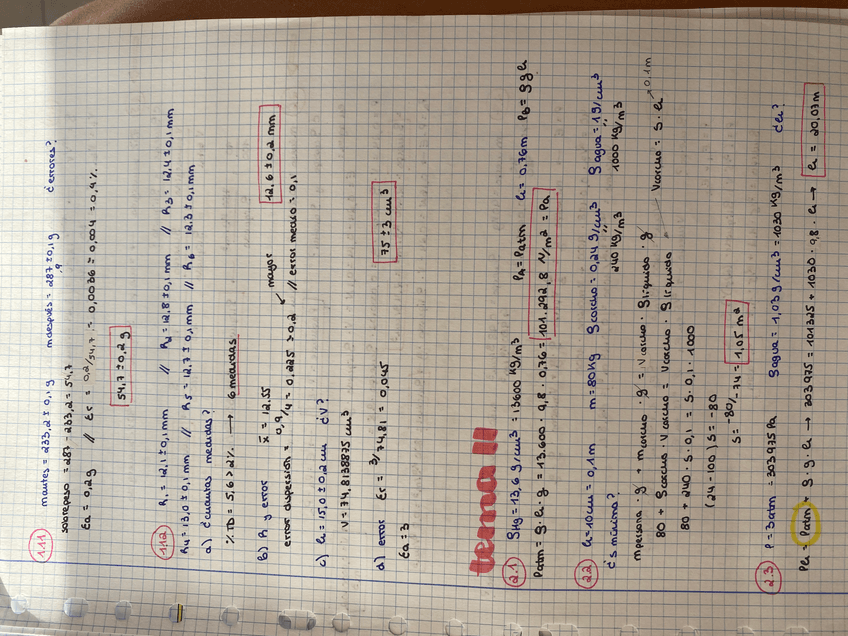 1.11 mantes = 233,2 ± 0,1 g mdespués = 287 ± 0,1 g ¿errores?
,9
sobrepeso = 287 - 233,2 = 54,7
Ea = 0,2 g // Er = 0,2/54,7 = 0,0036 ≈ 0,004 = 0,4%
54,7 ± 0,2 g
1.12 R₁ = 12.1 ± 0,1 mm // R₂ = 12.8 ± 0,1 mm // R₃ = 12.4 ± 0,1 mm
R₄ = 13,0 ± 0,1 mm // R₅ = 12.7 ± 0,1 mm // R₆ = 12.3 ± 0,1 mm
a) ¿cuántas medidas?
% TD = 5,6 > 2% → 6 medidas
b) R y error x̄ = 12.55 mayor 12,6 ± 0,2 mm
error dispersion = 0,9/4 = 0,225 ≈ 0,2 // error medio = 0,1
c) h = 15,0 ± 0,2 cm ¿V?
V = 74,8138875 cm³
d) error Er = 3/74,81 = 0,045 75 ± 3 cm³
Ea = 3
tema II
2.1 ρHg = 13,6 g/cm³ = 13600 Kg/m³ PA = Patm h = 0,76m PB = ρgh
Patm = ρ·h·g = 13.600 · 9,8 · 0,76 = 101.292,8 N/m² = Pa
2.2 h = 10cm = 0,1m m = 80Kg ρcorcho = 0,24 g/cm³ ρagua = 1 g/cm³
¿s mínima? 240 Kg/m³ 1000 Kg/m³
mpersona · g + mcorcho · g = Vcorcho · ρlíquido · g
80 + ρcorcho · Vcorcho = Vcorcho · ρlíquido Vcorcho = S · h → 0,1m
80 + 240 · S · 0,1 = S · 0,1 · 1000
(24 - 100) S = -80
S = -80/-74 = 1,05 m²
2.3 P = 3atm = 303975 Pa ρagua = 1,03 g/cm³ = 1030 Kg/m³ ¿h?
Ph = Patm + ρ·g·h → 303975 = 101325 + 1030 · 9,8 · h → h = 20,07m